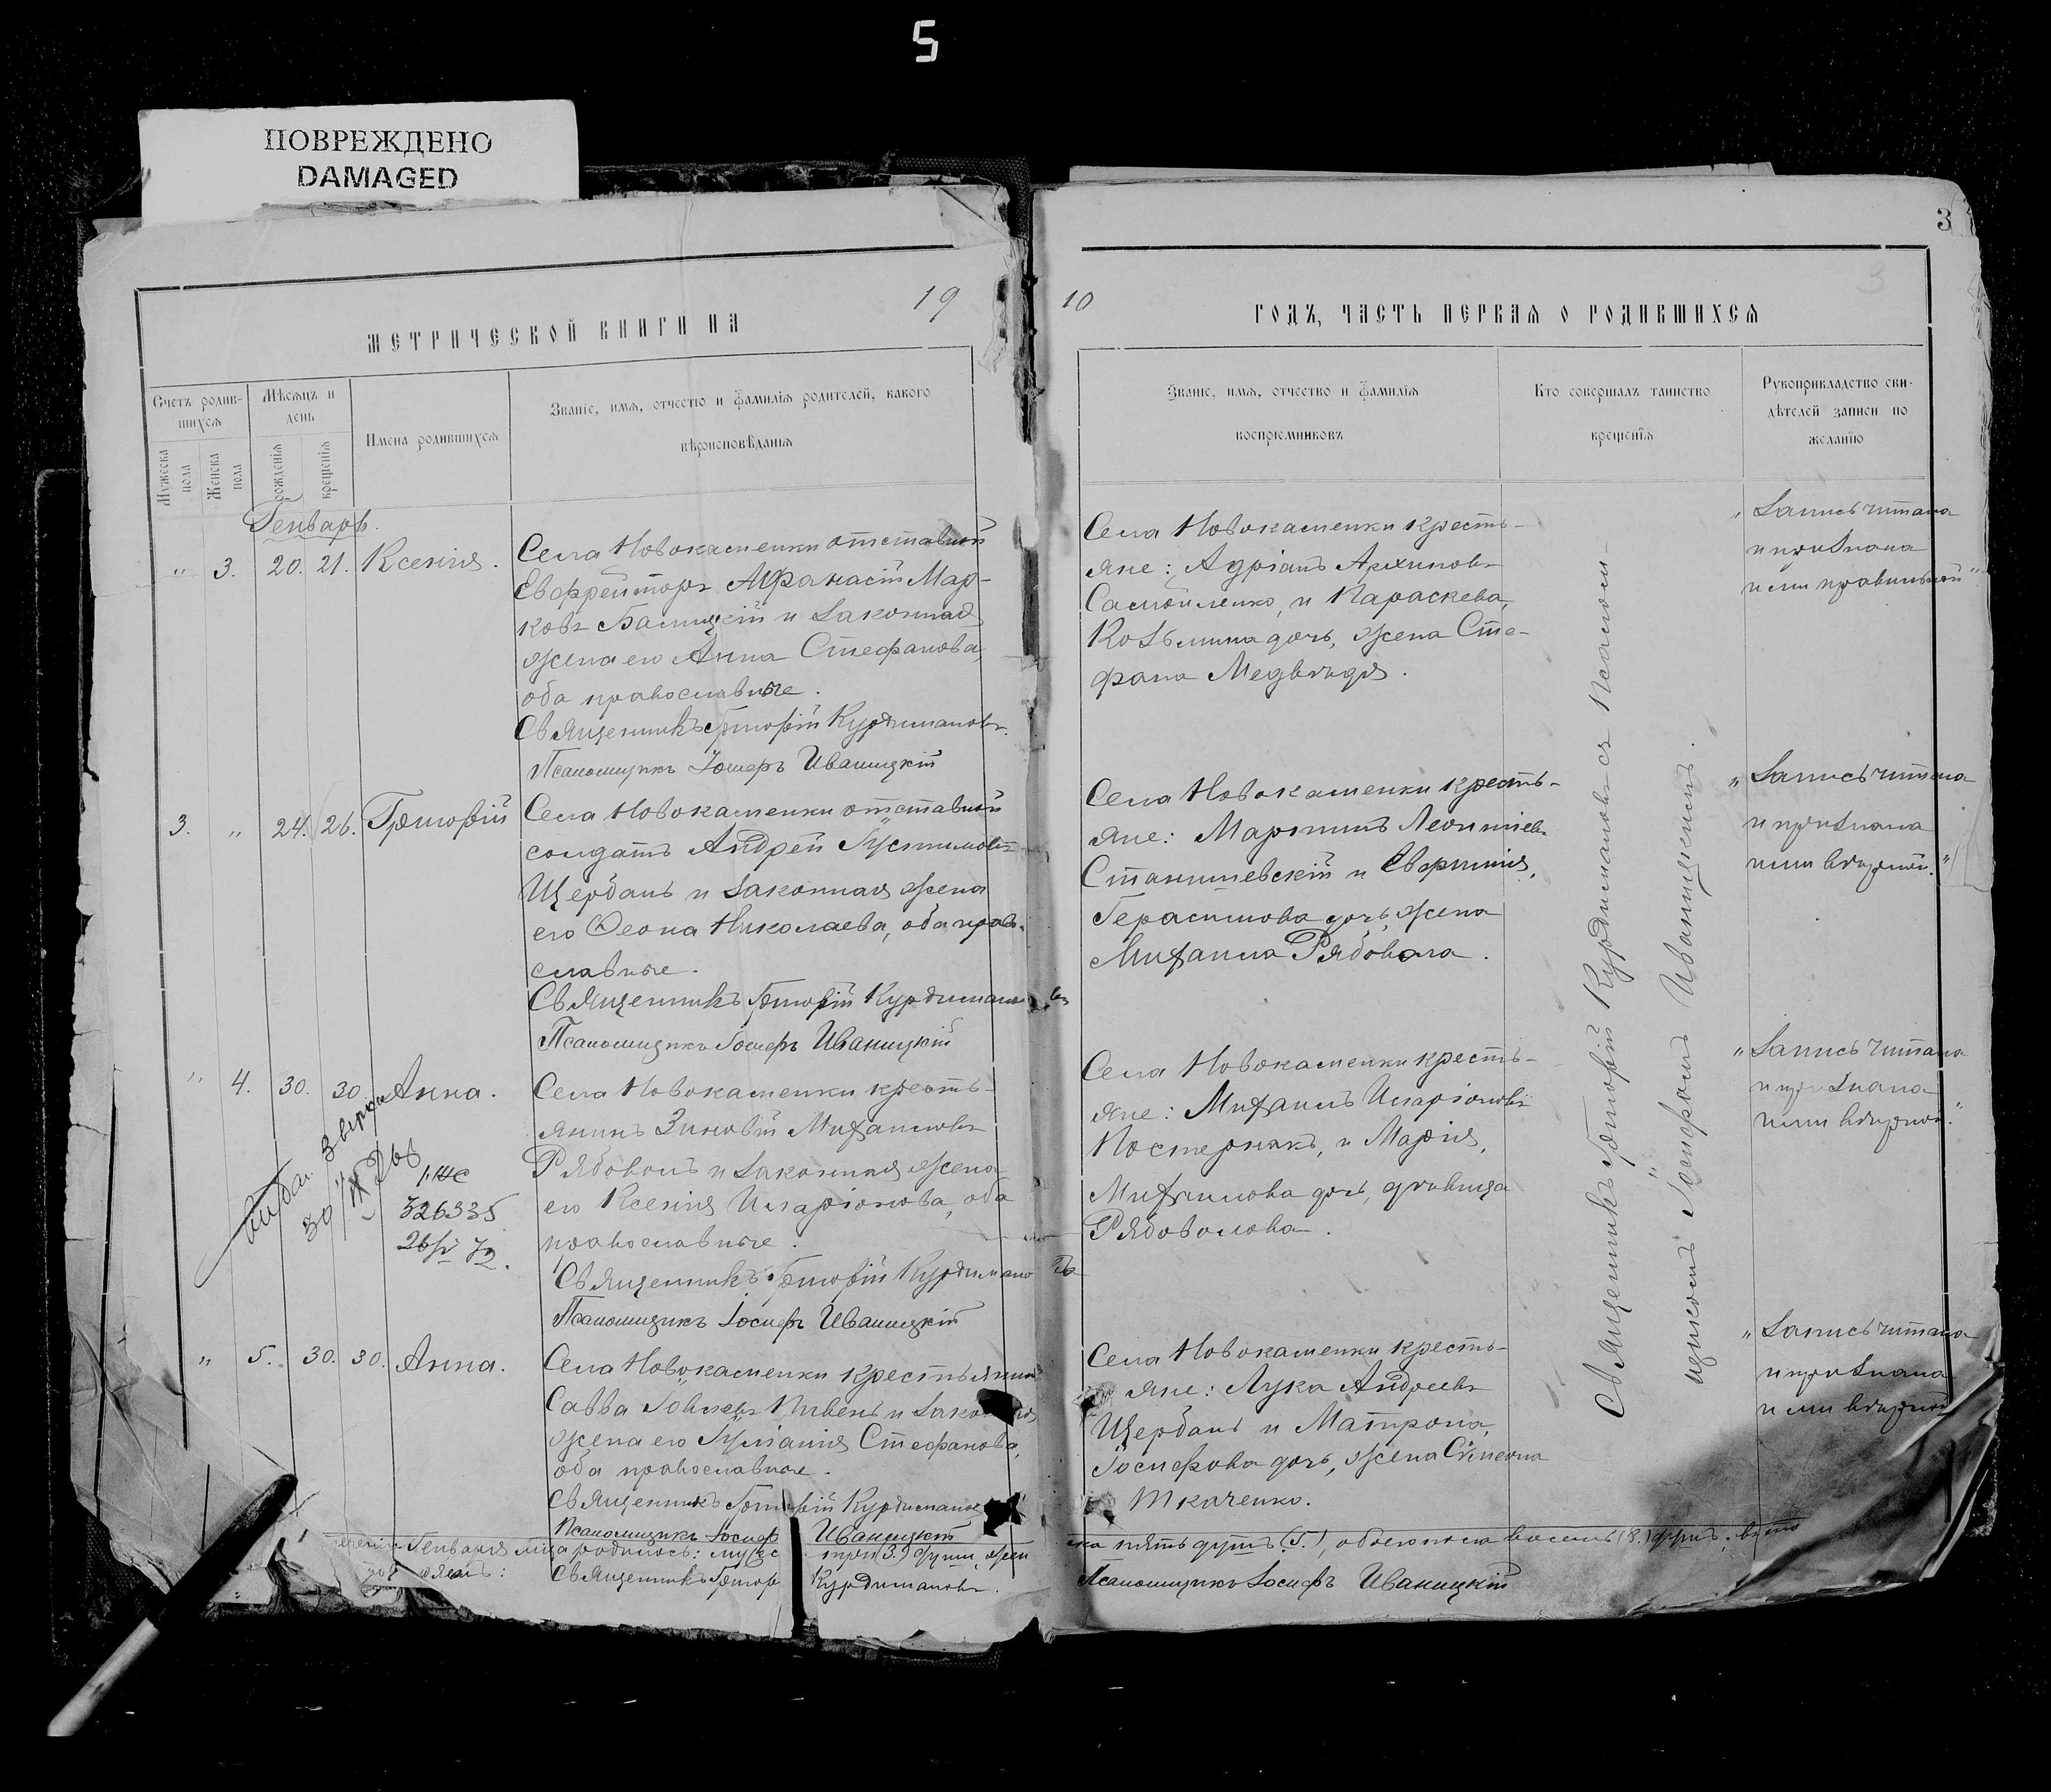 5
ПОВРЕЖДЕНО
DAMAGED
3
3
19
10
МЕТРИЧЕСКОЙ КНИГИ НА
ГОДЪ, ЧАСТЬ ПЕРВАЯ О РОДИВШИХСЯ
Счетъ родив-
шихся
Мужеска
пола
Женска
пола
Мѣсяцъ и
день
рожденія
крещенія
Имена родившихся
Званіе, имя, отчество и фамилія родителей, какого
вѣроисповѣданія
Званіе, имя, отчество и фамилія
воспріемниковъ
Кто совершалъ таинство
крещенія
Рукоприкладство сви-
дѣтелей записи по
желанію
Генварь.
" 3. 20. 21. Ксенія.
Села Новокаменки отставной
Ефрейторъ Афанасій Мар-
ковъ Балицкій и законная
жена его Анна Стефанова,
оба православные.
Священникъ Григорій Курдимановъ.
Псаломщикъ Іосифъ Иваницкій
Села Новокаменки кресть-
яне: Адріанъ Архиповъ
Самойленко, и Параскева,
Козьмина дочь, жена Сте-
фана Медвѣдя.
"Запись читана
и признана
ими правильной"
3. " 24. 26. Григорій
Села Новокаменки отставной
солдатъ Андрей Іустиновъ
Щербань и законная жена
его Ѳеона Николаева, оба право-
славные.
Священникъ Григорій Курдимановъ
Псаломщикъ Іосифъ Иваницкій
Села Новокаменки кресть-
яне: Мартинъ Леонтіевъ
Станишевскій и Евфимія,
Герасимова дочь, жена
Михаила Рябовола.
"Запись читана
и признана
ими вѣрной."
" 4. 30. 30. Анна.
Села Новокаменки кресть-
янинъ Зиновій Михаиловъ
Рябоволъ и законная жена
его Ксенія Иларіонова, оба
православные.
Священникъ Григорій Курдимановъ
Псаломщикъ Іосифъ Иваницкій
326335
Села Новокаменки кресть-
яне: Михаилъ Иларіоновъ
Постернакъ, и Марія,
Михаилова дочь, дѣвица
Рябоволова.
"Запись читана
и признана
ими вѣрной."
" 5. 30. 30. Анна.
Села Новокаменки крестьянинъ
Савва Іовлевъ Пивень и законная
жена его Іуліанія Стефанова,
оба православные.
Священникъ Григорій Курдимановъ
Псаломщикъ Іосифъ Иваницкій
Села Новокаменки кресть-
яне: Лука Андреевъ
Щербань и Матрона,
Іосифова дочь, жена Сѵмеона
Ткаченко.
"Запись читана
и признана
ими вѣрной
Священникъ Григорій Курдимановъ съ Псалом-
щикомъ Іосифомъ Иваницкимъ.
Генваря мца родилось: мужес три (3.) души, жен ска пять душъ (5.), обоего пола восемь (8.) душъ;
Священникъ Григор Курдимановъ. Псаломщикъ Іосифъ Иваницкій